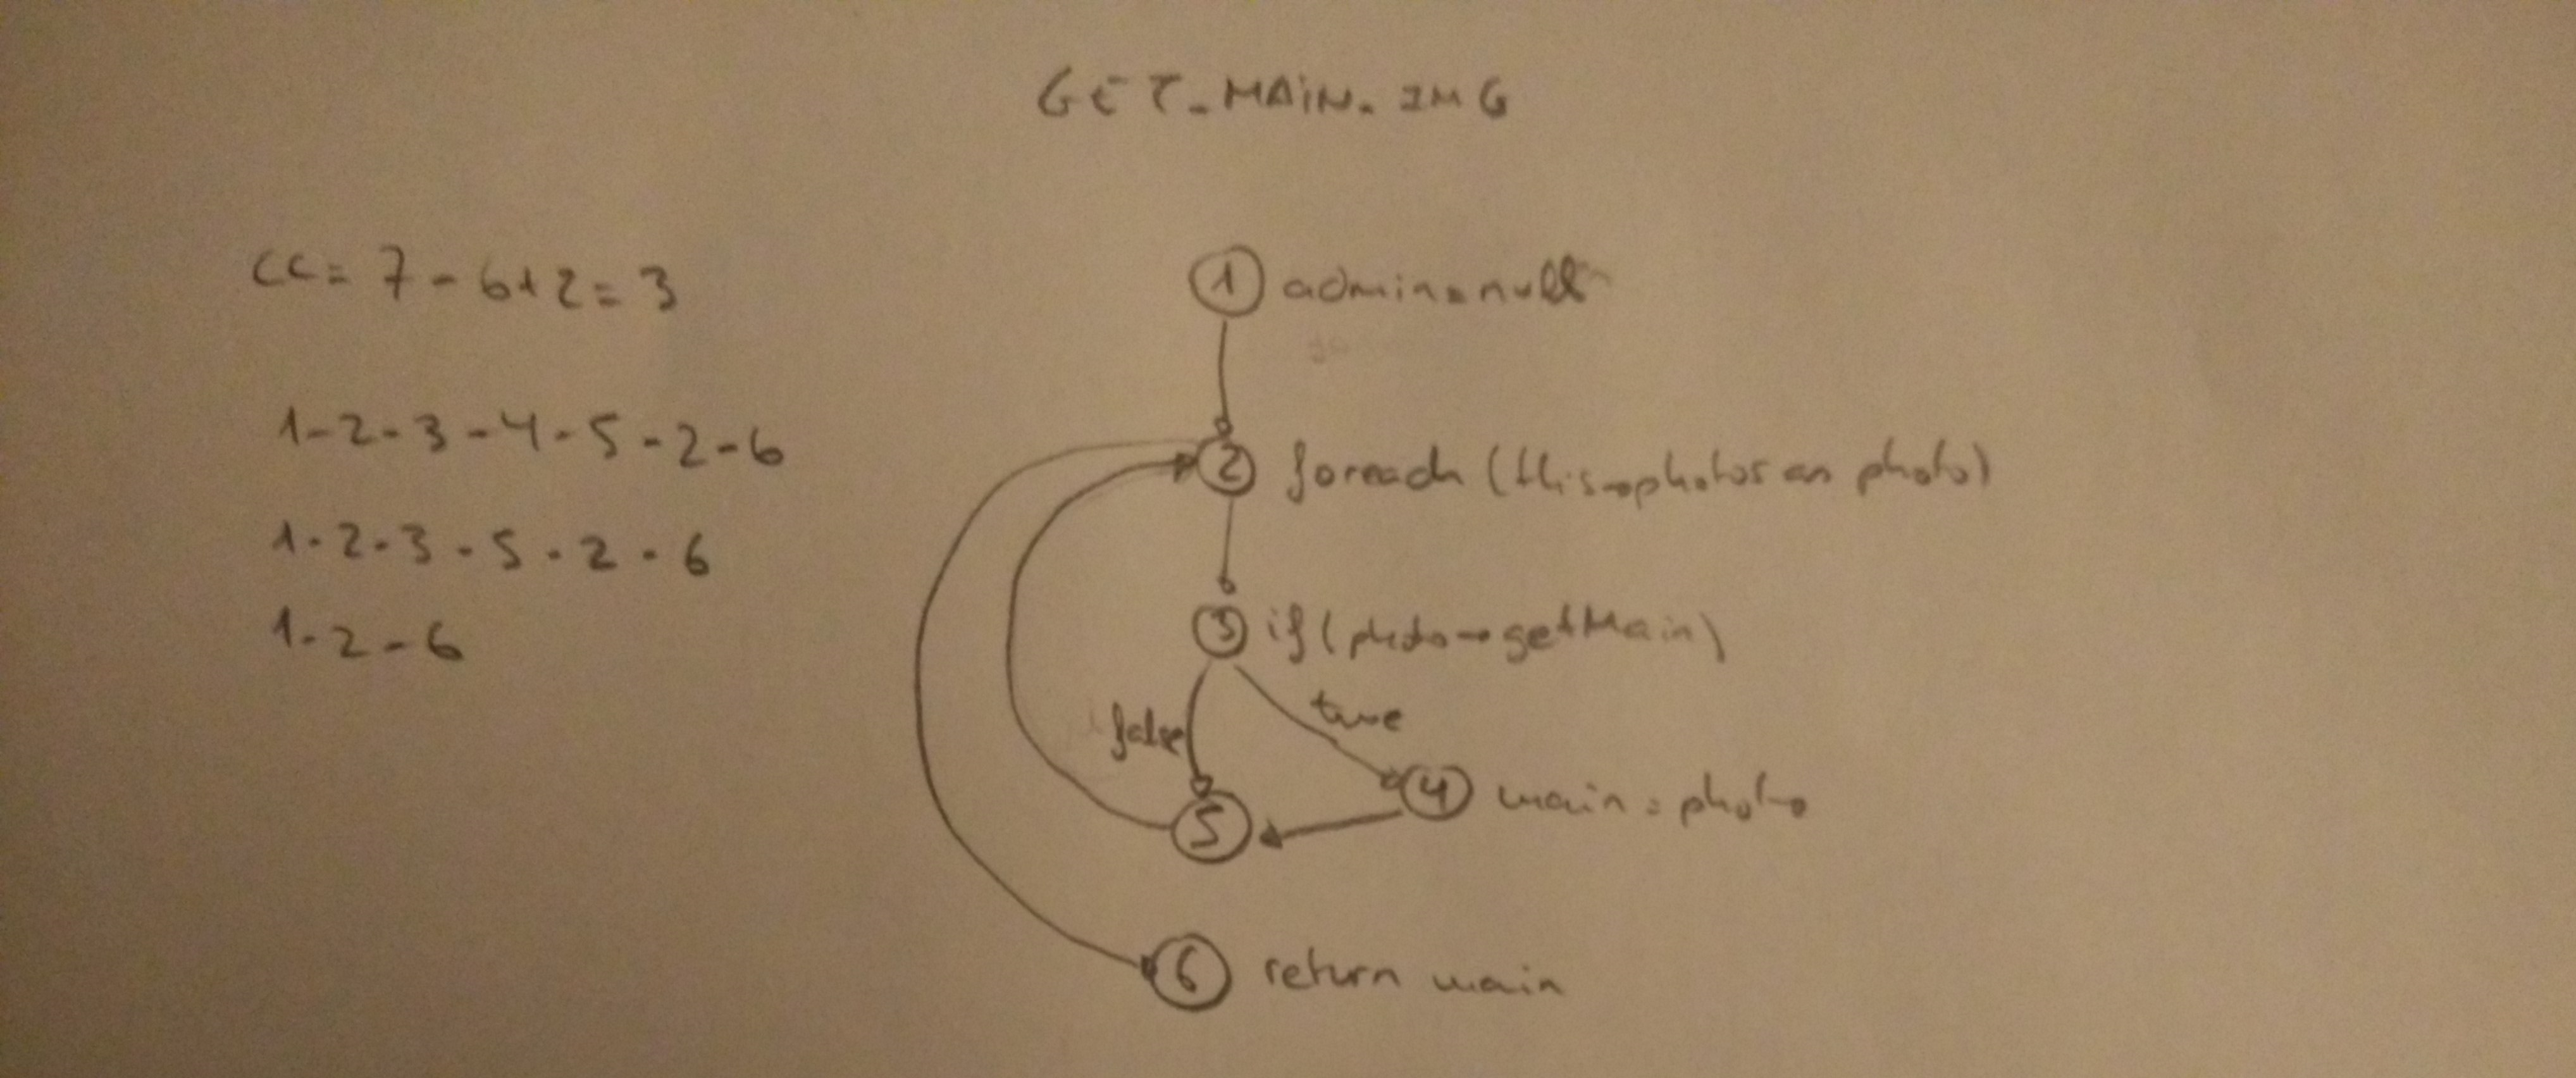 GET_MAIN_IMG
CC = 7 - 6 + 2 = 3
1-2-3-4-5-2-6
1-2-3-5-2-6
1-2-6
1 admin=null
2 foreach (this→photos as photo)
3 if (photo→getMain)
false
true
4 main = photo
5
6 return main